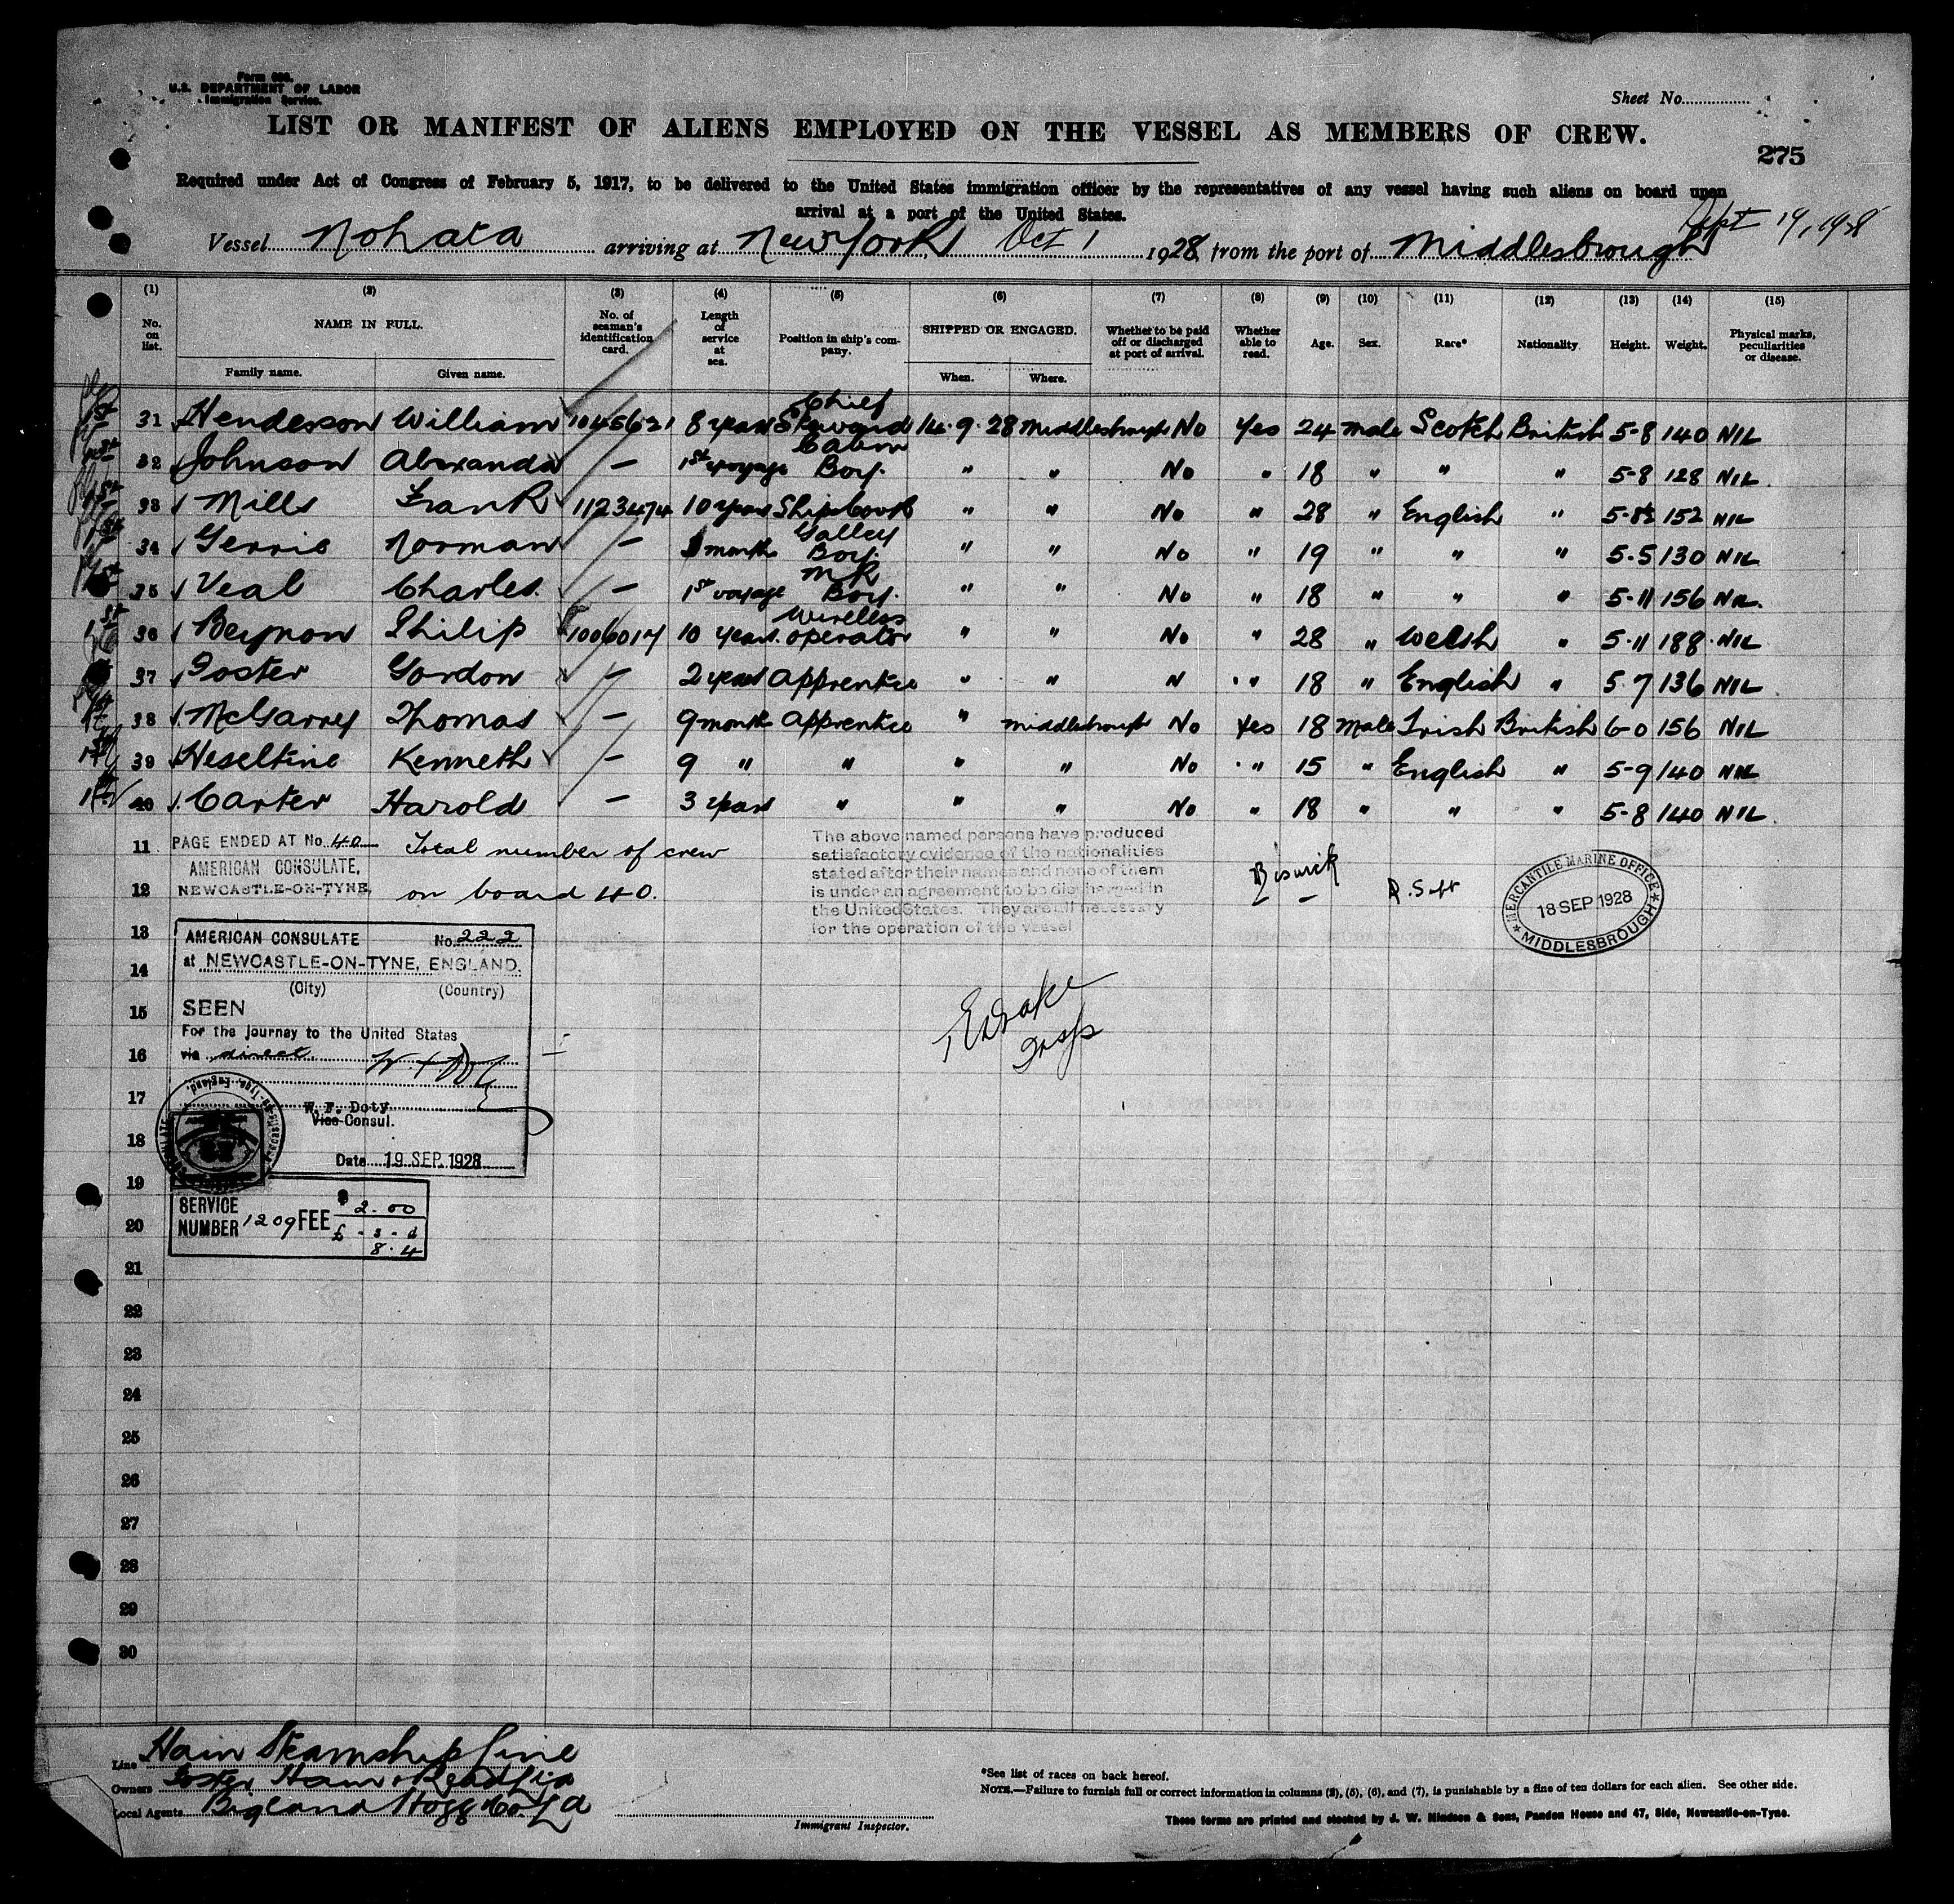 Form 680.
U.S. DEPARTMENT OF LABOR
Immigration Service.
Sheet No.
LIST OR MANIFEST OF ALIENS EMPLOYED ON THE VESSEL AS MEMBERS OF CREW.
275
Required under Act of Congress of February 5, 1917, to be delivered to the United States immigration officer by the representatives of any vessel having such aliens on board upon
arrival at a port of the United States.
Sept 19, 1928
Vessel Nohata arriving at New York, Oct 1 1928, from the port of Middlesbrough
(1) (2) (3) (4) (5) (6) (7) (8) (9) (10) (11) (12) (13) (14) (15)
No. on list. NAME IN FULL. Family name. Given name. No. of seaman's identification card. Length of service at sea. Position in ship's company. SHIPPED OR ENGAGED. When. Where. Whether to be paid off or discharged at port of arrival. Whether able to read. Age. Sex. Race* Nationality. Height. Weight. Physical marks, peculiarities or disease.
31 Henderson William 1045621 8 years Chief Steward 14.9.28 Middlesbrough No Yes 24 male Scotch British 5-8 140 NIL
32 Johnson Alexander — 1st voyage Cabin Boy. " " No " 18 " " " 5-8 128 NIL
33 Mills Frank 1123474 10 years Ships Cook " " No " 28 " English " 5-8½ 152 NIL
34 Gerris Norman — 1 month Galley Boy. " " No " 19 " " " 5-5 130 NIL
35 Veal Charles. — 1st voyage M R Boy. " " No " 18 " " " 5-11 156 NIL.
36 Beynon Philip 1006017 10 years. Wireless operator " " No " 28 " Welsh " 5-11 188 NIL
37 Foster Gordon — 2 years Apprentice " " N " 18 " English " 5-7 136 NIL
38 McGarrey Thomas — 9 months Apprentice " Middlesbrough No Yes 18 Male Irish British 6-0 156 NIL
39 Heseltine Kenneth — 9 " " " " No " 15 " English " 5-9 140 NIL
40 Carter Harold — 3 years " " " No " 18 " " " 5-8 140 NIL.
11 PAGE ENDED AT No. 40 Total number of crew
AMERICAN CONSULATE,
12 NEWCASTLE-ON-TYNE, on board 40.
The above named persons have produced
satisfactory evidence of the nationalities
stated after their names and none of them
is under an agreement to be discharged in
the United States. They are all necessary
for the operation of the vessel
MERCANTILE MARINE OFFICE
18 SEP 1928
MIDDLESBROUGH
13
AMERICAN CONSULATE No. 222
at NEWCASTLE-ON-TYNE, ENGLAND.
14
(City) (Country)
15 SEEN
For the journey to the United States
16 via direct
17
W. F. Doty
Vice Consul.
18
Date 19 SEP. 1928
19
SERVICE NUMBER 1209 FEE $ 2.00
20 £ - s - d
8.4
21
22
23
24
25
26
27
28
29
30
Line Hain Steamship Line
Owners Foster Hain & Read
Local Agents Bigland Hogg Co Ld
Immigrant Inspector.
*See list of races on back hereof.
NOTE.—Failure to furnish full or correct information in columns (2), (5), (6), and (7), is punishable by a fine of ten dollars for each alien. See other side.
These forms are printed and stocked by J. W. Hindson & Sons, Pandon House and 47, Side, Newcastle-on-Tyne.